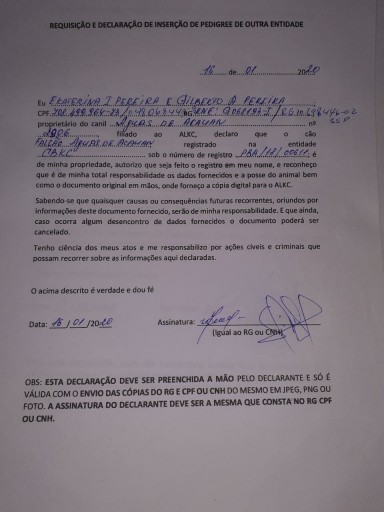 REQUISIÇÃO E DECLARAÇÃO DE INSERÇÃO DE PEDIGREE DE OUTRA ENTIDADE
16 de 01 2020
Eu EKATERINA I PEREIRA E GILBERTO A PEREIRA
CPF
proprietário do canil ÁGUAS DE ACAUAN na
2006 filiado ao ALKC, declaro que o cão
registrado na entidade
"CBKC" sob o número de registro é
de minha propriedade, autorizo que seja feito o registro em meu nome, e reconheço
que é de minha total responsabilidade os dados fornecidos e a posse do animal bem
como o documento original em mãos, onde forneço a cópia digital para o ALKC.
Sabendo-se que quaisquer causas ou consequências futuras recorrentes, oriundos por
informações deste documento fornecido, serão de minha responsabilidade. E que ainda,
caso ocorra algum desencontro de dados fornecidos o documento poderá ser
cancelado.
Tenho ciência dos meus atos e me responsabilizo por ações cíveis e criminais que
possam recorrer sobre as informações aqui declaradas.
O acima descrito é verdade e dou fé
Data: 16 / 01 /2020 Assinatura:
(Igual ao RG ou CNH)
OBS: ESTA DECLARAÇÃO DEVE SER PREENCHIDA A MÃO PELO DECLARANTE E SÓ É
VÁLIDA COM O ENVIO DAS CÓPIAS DO RG E CPF OU CNH DO MESMO EM JPEG, PNG OU
FOTO. A ASSINATURA DO DECLARANTE DEVE SER A MESMA QUE CONSTA NO RG CPF
OU CNH.